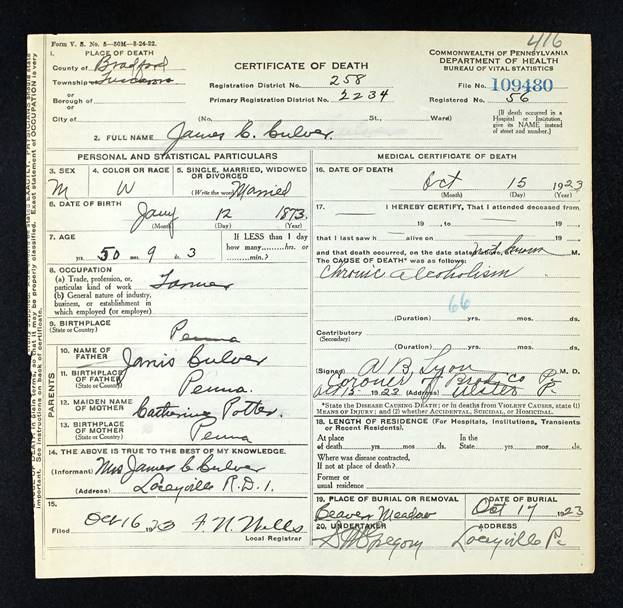 416
Form V. S. No. 5—50M—3-24-22.
1. PLACE OF DEATH
County of Bradford
Township of Tuscarora
or
Borough of
or
City of
CERTIFICATE OF DEATH
Registration District No. 258
Primary Registration District No. 2234
(No. St., Ward)
COMMONWEALTH OF PENNSYLVANIA
DEPARTMENT OF HEALTH
BUREAU OF VITAL STATISTICS
File No. 109480
Registered No. 56
(If death occurred in a
Hospital or Institution,
give its NAME instead
of street and number.)
2. FULL NAME James C. Culver.
PERSONAL AND STATISTICAL PARTICULARS
3. SEX
M
4. COLOR OR RACE
W
5. SINGLE, MARRIED, WIDOWED
OR DIVORCED
(Write the word) Married
6. DATE OF BIRTH
Jany 12 1873.
(Month) (Day) (Year)
7. AGE
yrs. 50 mos. 9 ds. 3
If LESS than 1 day
how many hrs. or
min.?
8. OCCUPATION
(a) Trade, profession, or
particular kind of work Farmer
(b) General nature of industry,
business, or establishment in
which employed (or employer)
9. BIRTHPLACE
(State or Country) Penna
PARENTS
10. NAME OF
FATHER Janis Culver
11. BIRTHPLACE
OF FATHER
(State or Country) Penna.
12. MAIDEN NAME
OF MOTHER Catherine Potter.
13. BIRTHPLACE
OF MOTHER
(State or Country) Penna
14. THE ABOVE IS TRUE TO THE BEST OF MY KNOWLEDGE.
(Informant) Mrs James C Culver
(Address) Laceyville R.D.1.
15.
Filed Oct 16 1923 F. N. Wells
Local Registrar
MEDICAL CERTIFICATE OF DEATH
16. DATE OF DEATH
Oct 15 1923
(Month) (Day) (Year)
17. I HEREBY CERTIFY, That I attended deceased from
19 , to 19
that I last saw h alive on 19
and that death occurred, on the date stated above, at not known M.
The CAUSE OF DEATH* was as follows:
Chronic alcoholism
66
(Duration) yrs. mos. ds.
Contributory
(Secondary)
(Duration) yrs. mos. ds.
(Signed) A B Lyon M. D.
Coroner of Brad. Co Pa
Oct 15 1923 (Address) Ulster Pa
*State the DISEASE CAUSING DEATH; or in deaths from VIOLENT CAUSES, state (1)
MEANS OF INJURY; and (2) whether ACCIDENTAL, SUICIDAL, or HOMICIDAL.
18. LENGTH OF RESIDENCE (For Hospitals, Institutions, Transients
or Recent Residents).
At place In the
of death yrs. mos. ds. State yrs. mos. ds.
Where was disease contracted,
If not at place of death?
Former or
usual residence
19. PLACE OF BURIAL OR REMOVAL
Beaver Meadow
DATE OF BURIAL
Oct 17 1923
20. UNDERTAKER
Gregory
ADDRESS
Laceyville Pa